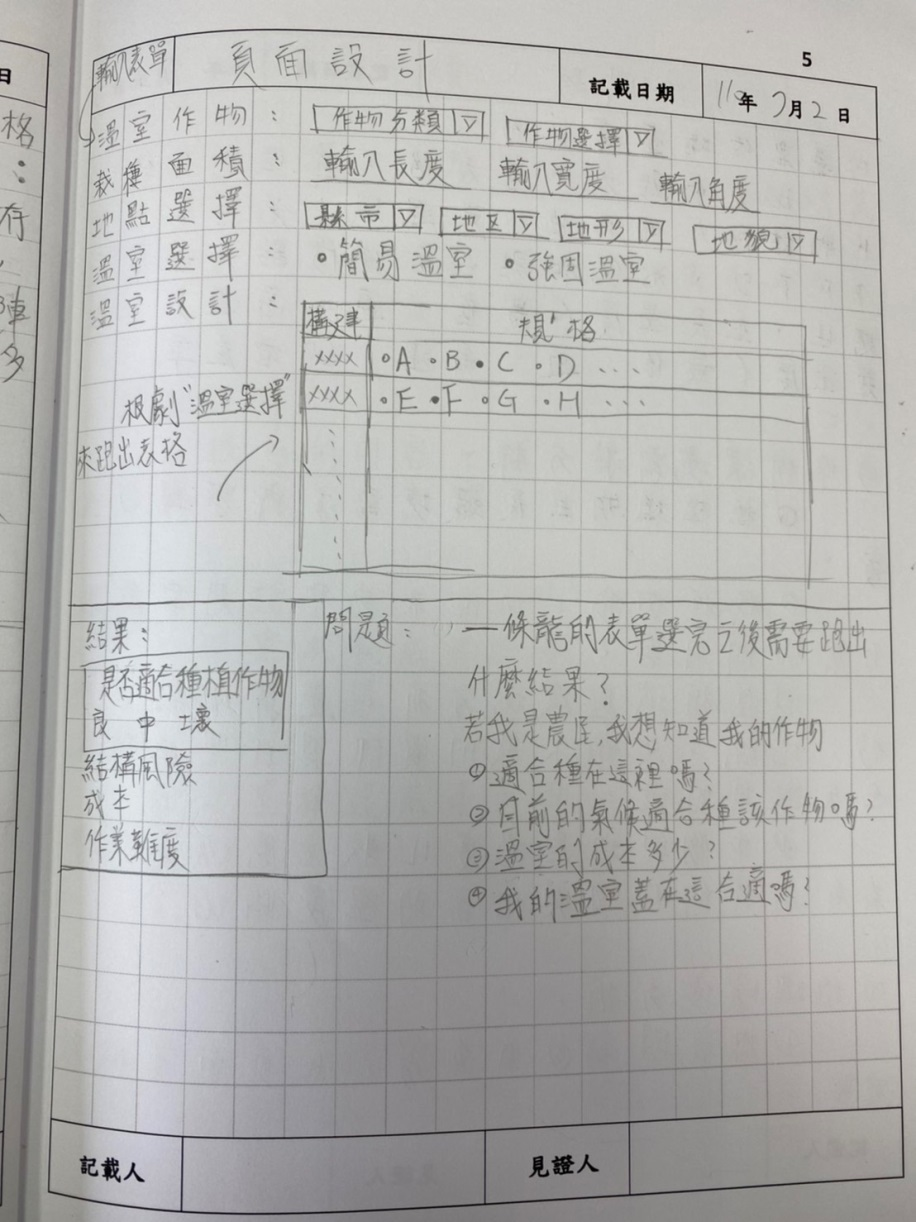 5
輸入表單 頁面設計 記載日期 110年 7月2日
溫室作物： 作物分類▽ 作物選擇▽
栽種面積： 輸入長度 輸入寬度 輸入角度
地點選擇： 縣市▽ 地区▽ 地形▽ 地貌▽
溫室選擇： •簡易溫室 •強固溫室
溫室設計：
構建 規格
xxxx •A •B •C •D ...
xxxx •E •F •G •H ...
根劇"溫室選擇"
來跑出表格
結果：
是否適合種植作物
良 中 壞
結構風險
成本
作業難度
問題： 一條龍的表單選完之後需要跑出
什麼結果？
若我是農民,我想知道我的作物
①適合種在這裡嗎？
②目前的氣候適合種該作物嗎？
③溫室的成本多少？
④我的溫室蓋在這合適嗎？
記載人 見證人
日
格
：
存
多